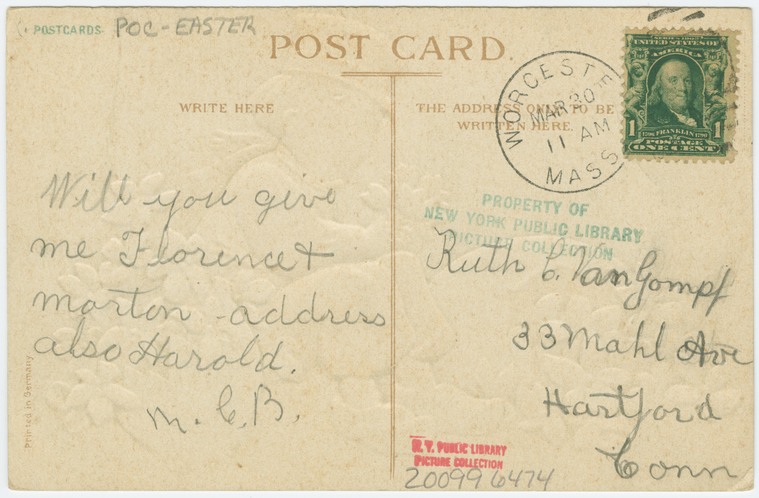 POSTCARDS POC-EASTER
POST CARD.
WRITE HERE
THE ADDRESS ONLY TO BE
WRITTEN HERE.
WORCESTE
MAR 30
11 AM
MASS
SERIES 1902
UNITED STATES OF
AMERICA
1 1
1706 FRANKLIN 1790
POSTAGE
ONE CENT
PROPERTY OF
NEW YORK PUBLIC LIBRARY
PICTURE COLLECTION
Will you give
me Florence &
morton - address
also Harold.
M. C. B.
Ruth C. VanGompf
33 Mahl Ave
Hartford
Conn
Printed in Germany
N. Y. PUBLIC LIBRARY
PICTURE COLLECTION
200996474